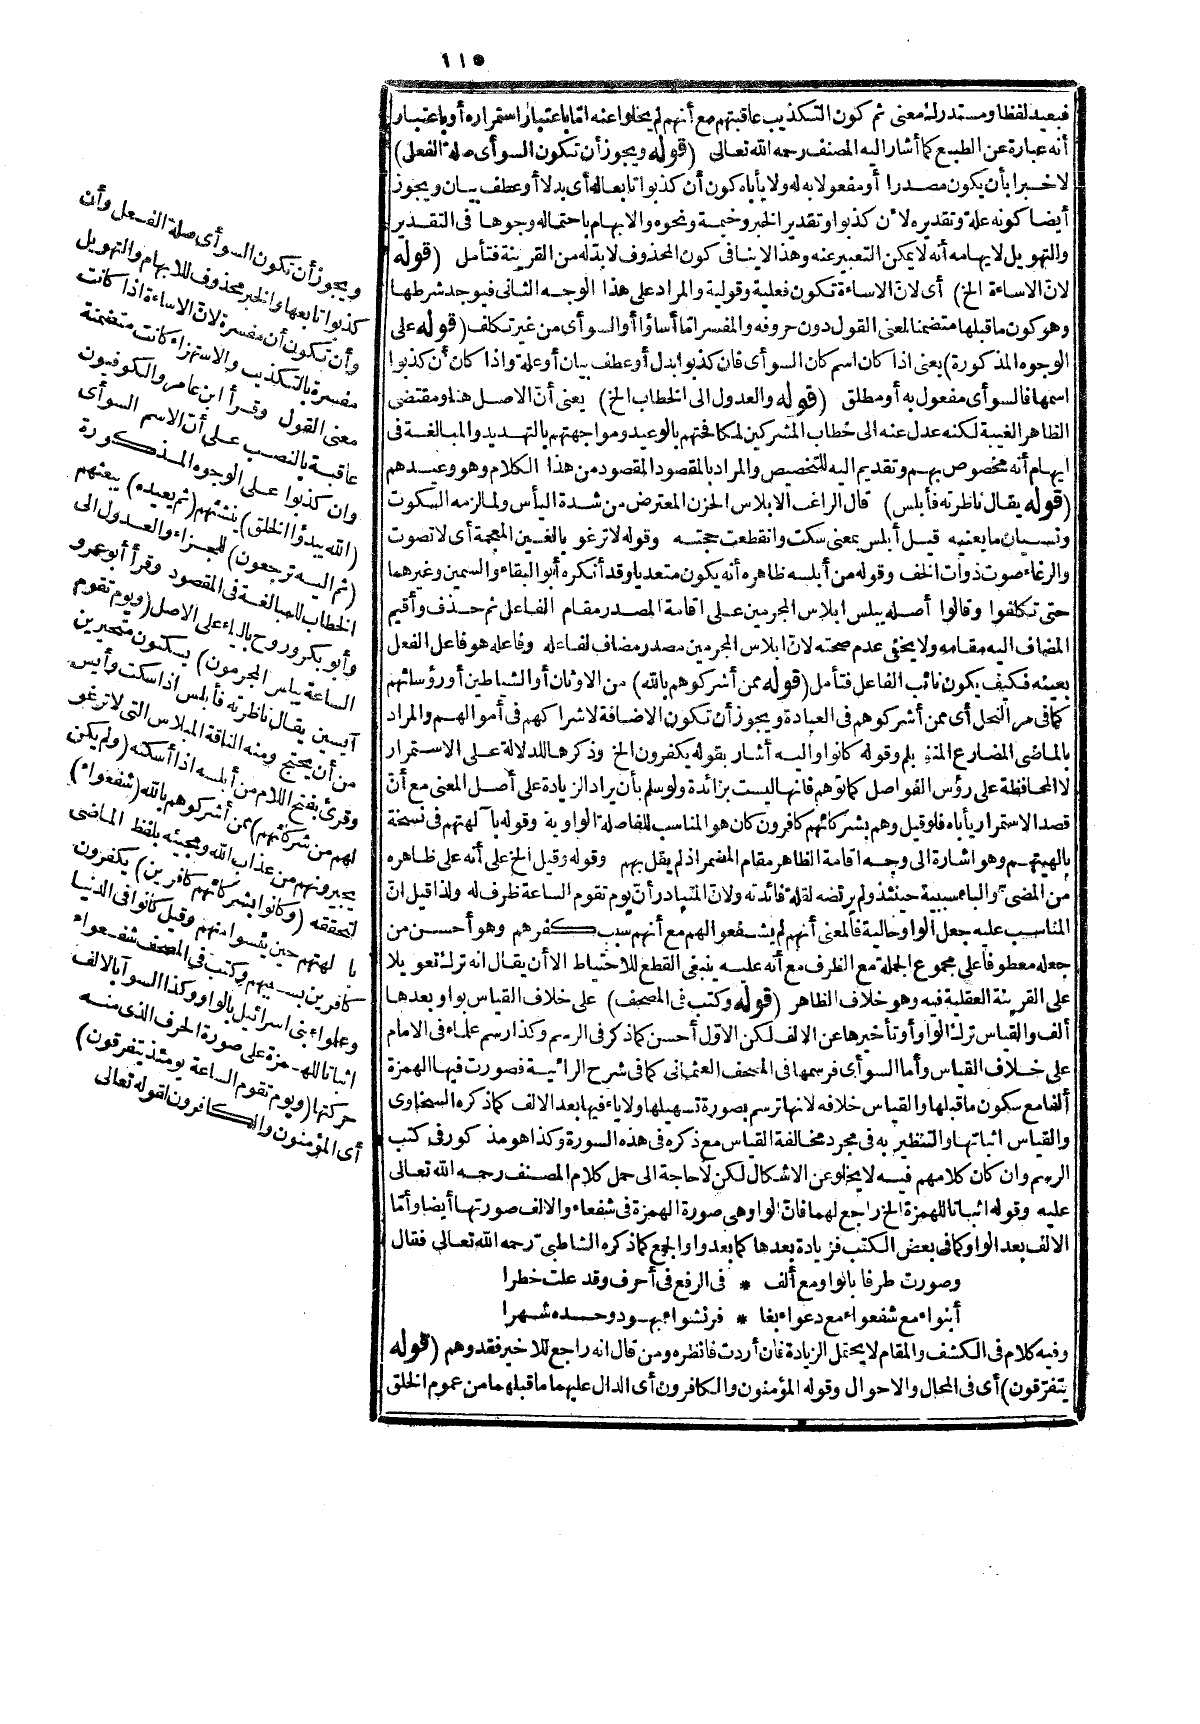 ١١٥
فبعيد لفظا ومستدرك معنى ثم كون التكذيب عاقبتهم مع أنهم لم يخلوا عنه اما باعتبار استمراره أو باعتبار
أنه عبارة عن الطبع كما أشار اليه المصنف رحمه الله تعالى (قوله ويجوز أن تكون السوأى صلة الفعل)
لا خبرا بأن يكون مصدرا أو مفعولا به له ولا يأباه كون أن كذبوا تابعا له أى بدلا أو عطف بيان ويجوز
أيضا كونه علة وتقديره لا ن كذبوا وتقدير الخبر وخيمة ونحوه والابهام باحتماله وجوها فى التقدير
والتهويل لايهامه أنه لا يمكن التعبير عنه وهذا لا ينافى كون المحذوف لا بد له من القرينة فتأمل (قوله
لانّ الاساءة الخ) أى لانّ الاساءة تكون فعلية وقولية والمراد على هذا الوجه الثانى فيوجد شرطها
وهو كون ما قبلها متضمنا لمعنى القول دون حروفه والمفسر امّا أساؤا أو السوأى من غير تكلف (قوله على
الوجوه المذكورة) يعنى اذا كان اسم كان السوأى فان كذبوا بدل أو عطف بيان أو علة واذا كان أن كذبوا
اسمها فالسوأى مفعول به أو مطلق (قوله والعدول الى الخطاب الخ) يعنى أنّ الاصل هنا ومقتضى
الظاهر الغيبة لكنه عدل عنه الى خطاب المشركين لمكافحتهم بالوعيد ومواجهتهم بالتهديد والمبالغة فى
ايهام أنه مخصوص بهم وتقديم اليه للتخصيص والمراد بالمقصود المقصود من هذا الكلام وهو وعيدهم
(قوله يقال ناظرته فأبلس) قال الراغب الابلاس الحزن المعترض من شدة اليأس ولما لزمه السكوت
ونسيان ما يعنيه قيل أبلس بمعنى سكت وانقطعت حجته وقوله لا ترغو بالغين المعجمة أى لا تصوت
والرغاء صوت ذوات الخف وقوله من أبلسه ظاهره أنه يكون متعديا وقد أنكره أبو البقاء والسمين وغيرهما
حتى تكلفوا وقالوا أصله يبلس ابلاس المجرمين على اقامة المصدر مقام الفاعل ثم حذف وأقيم
المضاف اليه مقامه ولا يخفى عدم صحته لانّ ابلاس المجرمين مصدر مضاف لفاعله وفاعله هو فاعل الفعل
بعينه فكيف يكون نائب الفاعل فتأمل (قوله ممن أشركوهم بالله) من الاوثان أو الشياطين أو رؤسائهم
كما فى مر النحل أى ممن أشركوهم فى العبادة ويجوز أن تكون الاضافة لاشراكهم فى أموالهم والمراد
بالماضى المضارع المنفى بلم وقوله كانوا واليه أشار بقوله يكفرون الخ وذكرها للدلالة على الاستمرار
لا المحافظة على رؤس الفواصل كما توهم فانها ليست بزائدة ولو سلم بأن يراد الزيادة على أصل المعنى مع أنّ
قصد الاستمرار يأباه فلو قيل وهم بشركائهم كافرون كان هو المناسب للفاصلة الواوية وقوله بآ لهتهم فى نسخة
بالهيتهم وهو اشارة الى وجه اقامة الظاهر مقام المضمر اذ لم يقل بهم وقوله وقيل الخ على أنه على ظاهره
من المضىّ والباء سببية حينئذ ولم يرتضه لقلة فائدته ولانّ المتبادر أنّ يوم تقوم الساعة ظرف له ولذا قيل انّ
المناسب عليه جعل الواو حالية فالمعنى أنهم لم يشفعوا لهم مع أنهم سبب كفرهم وهو أحسن من
جعله معطوفا على مجموع الجملة مع الظرف مع أنه عليه ينبغى القطع للاحتياط الا أن يقال انه ترك تعويلا
على القرينة العقلية فيه وهو خلاف الظاهر (قوله وكتب فى المصحف) على خلاف القياس بواو بعدها
ألف والقياس ترك الواو أو تأخيرها عن الالف لكن الاوّل أحسن كما ذكر فى الرسم وكذا رسم علماء فى الامام
على خلاف القياس وأما السوأى فرسمها فى المصحف العثمانى كما فى شرح الرائية فصورت فيها الهمزة
ألفا مع سكون ما قبلها والقياس خلافه لانها ترسم بصورة تسهيلها ولا ياء فيها بعد الالف كما ذكره السخاوى
والقياس اثباتها والتنظير به فى مجرد مخالفة القياس مع ذكره فى هذه السورة وكذا هو مذ كور فى كتب
الرسم وان كان كلامهم فيه لا يخلو عن الاشكال لكن لا حاجة الى حمل كلام المصنف رحمه الله تعالى
عليه وقوله اثباتا للهمزة الخ راجع لهما فانّ الواو هى صورة الهمزة فى شفعاء والالف صورتها أيضا وأمّا
الالف بعد الواو كما فى بعض الكتب فزيادة بعدها كما بعد واو الجمع كما ذكره الشاطبىّ رحمه الله تعالى فقال
وصورت طرفا بالواو مع ألف * فى الرفع فى أحرف وقد علت خطرا
أبنواء مع شفعواء مع دعواء بغا * فر نشواء بهود وحده شهرا
وفيه كلام فى الكشف والمقام لا يحتمل الزيادة فان أردت فانظره ومن قال انه راجع للاخير فقد وهم (قوله
يتفرّقون) أى فى المحال والاحوال وقوله المؤمنون والكافرون أى الدال عليهما ما قبلهما من عموم الخلق
ويجوز أن تكون السوأى صلة الفعل وأن
كذبوا تابعها والخبر محذوف للابهام والتهويل
وأن تكون أن مفسرة لانّ الاساءة اذا كانت
مفسرة بالتكذيب والاستهزاء كانت متضمنة
معنى القول وقرأ ابن عامر والكوفيون
عاقبة بالنصب على أنّ الاسم السوأى
وان كذبوا على الوجوه المذكورة
(الله يبدؤا الخلق) ينشئهم (ثم يعيده) يبعثهم
(ثم اليه ترجعون) للجزاء والعدول الى
الخطاب للمبالغة فى المقصود وقرأ أبو عمرو
وأبو بكر وروح بالياء على الاصل (ويوم تقوم
الساعة يبلس المجرمون) يسكتون متحيرين
آيسين يقال ناظرته فأبلس اذا سكت وأيس
من أن يحتج ومنه الناقة المبلاس التى لا ترغو
وقرئ بفتح اللام من أبلسه اذا أسكته (ولم يكن
لهم من شركائهم) ممن أشركوهم بالله (شفعواء)
يجيرونهم من عذاب الله ومجيئه بلفظ الماضى
لتحققه (وكانوا بشركائهم كافرين) يكفرون
بآ لهتهم حين يئسوا منهم وقيل كانوا فى الدنيا
كافرين بسببهم وكتب فى المصحف شفعواء
وعلمواء بنى اسرائيل بالواو وكذا السوآ بالالف
اثباتا للهمزة على صورة الحرف الذى منه
حركتها (ويوم تقوم الساعة يومئذ يتفرقون)
أى المؤمنون والكافرون لقوله تعالى